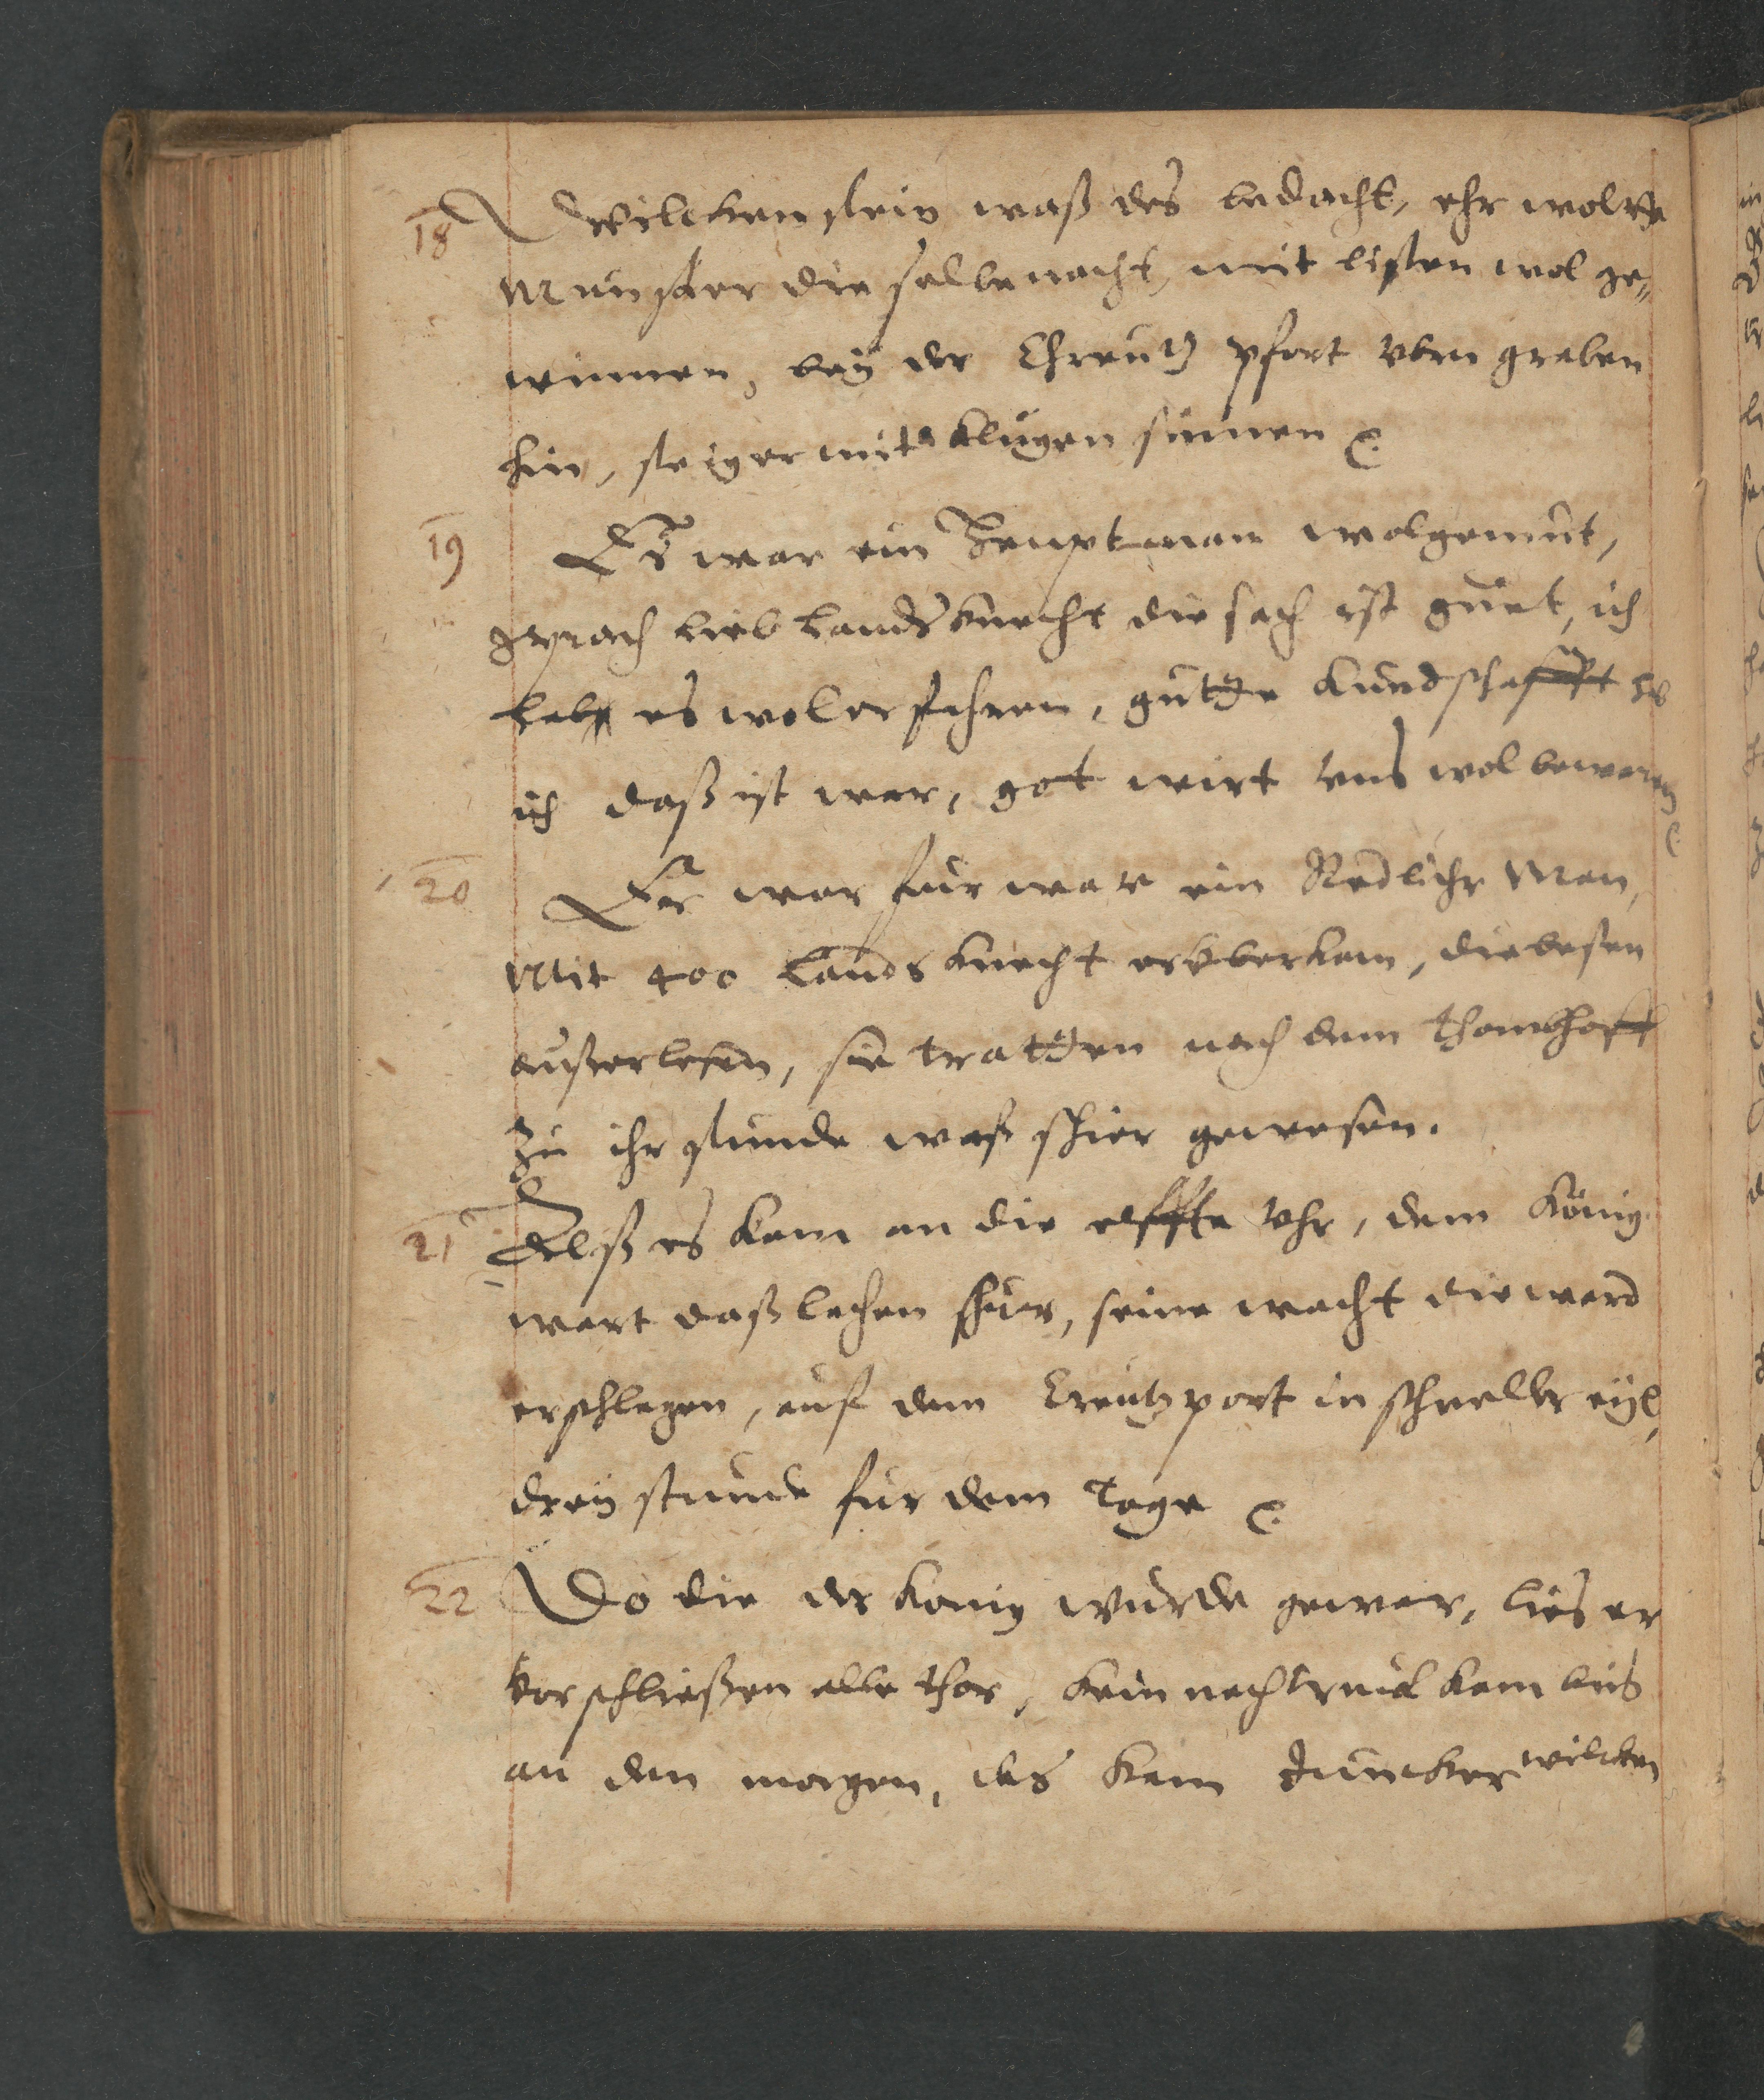 18 Wilckenstein waß des bedacht, ehr wolte
Munster die selbe nacht, mit listen wol ge„
winnen, beÿ der Chreutz pfort vbrn graben
hin, steiger mit klugen sinnen
19 Es war ein Heuptman wolgemut,
sprach lieb landsknecht die sach ist guet, ich
hab es wol erfahren, gutte kundschafft hab
ich daß ist war, got wirt vns wol bewaren
20 Er war fur war ein Redlicher Man,
Mit 400 Landsknecht er vberkam, die besten
außerlesen, sie tratten nach dem thombhoff
Zu ihr stunde waß schier gewesen.
21 Alß es kam an die elffte Vhr, dem König
wart daß lachen theur, seine wacht die ward
erschlagen, auf dem Creutzport in schneller eÿl,
dreÿ stunde fur dem Tage
22 Do die der konig wurde gewar, lies er
vorschließen alle thor, kein nachtruck kam bis
an den morgen, das kam Juncker wilcken